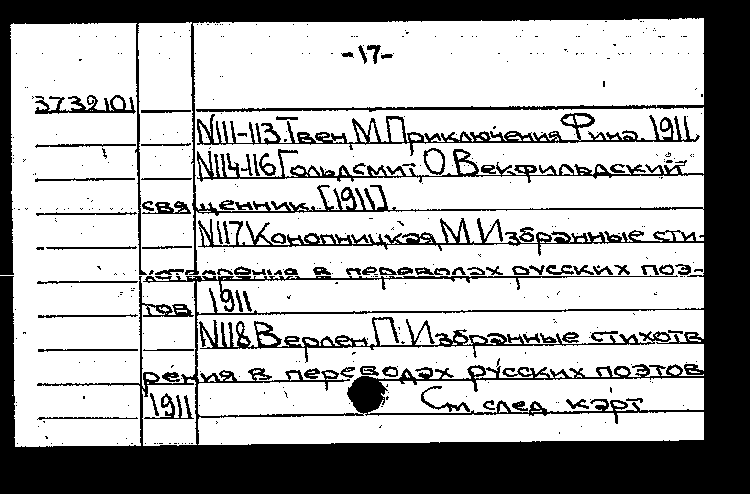 -17-
3732101
N111-113. Твен, М. Приключения Фина. 1911.
N114-116 Гольдсмит, О. Векфильдский
священник. [1911].
N117. Конопницкая, М. Избранные сти-
хотворения в переводах русских поэ-
тов 1911.
N118. Верлен, П. Избранные стихотв
рения в переводах русских поэтов
1911
См. след карт